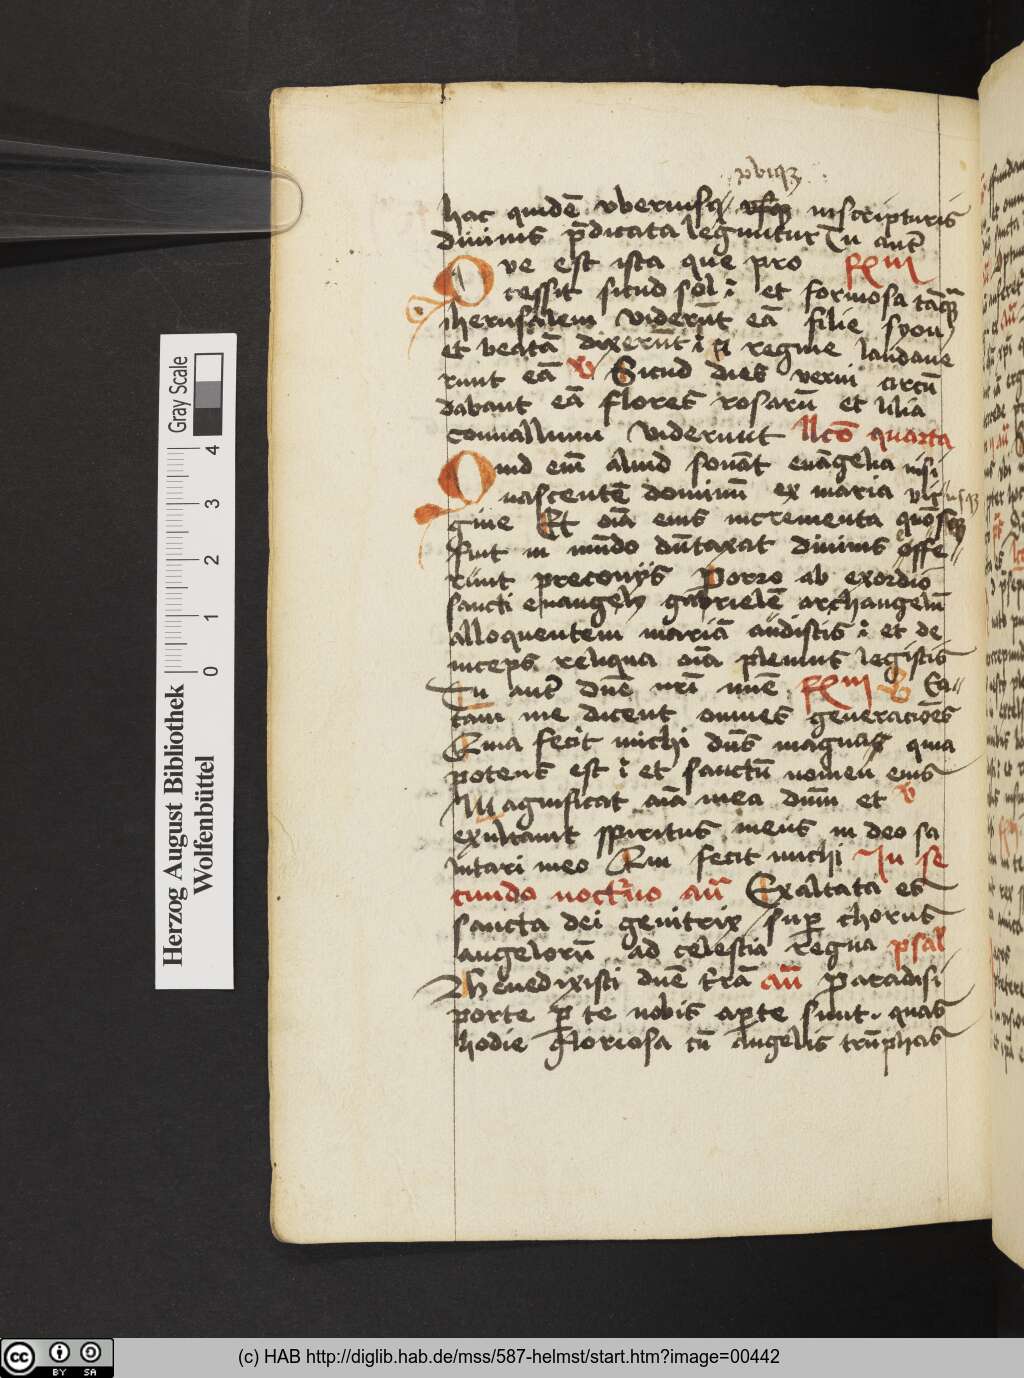 vbiq3
hac quidē vberiusq3 vsq3 in scripturis
diuinis p̄dicata leguntur Tu aut̄
Que est ista que pro R̄m iii
cessit sicud sol : et formosa tāq̄
iherusalem viderūt eā filie syon
et beatā dixerūt : et regine laudaue
runt eā v̄ Sicud dies verni circū
dabant eā flores rosarū et lilia
conuallium viderunt llcō quarta
Quid em̄ aliud sonāt euāgelia nisi
nascentē dominū ex maria vir
gine Et oīa eius incrementa quousq3
fuit in mūdo dūtaxat diuinis offe
runt preconijs Porro ab exordio
sancti euangelij gabrielē archangelū
alloquentem mariā audistis : et de
inceps reliqua oīa plenius legistis
Tu aut̄ dn̄e nr̄i mie R̄m iiii B Ea
tam me dicent omnes generaciōes
Quia fecit michi dn̄s magna quia
potens est : et sanctū nomen eius
Magnificat aīa mea dnm̄ et v̄
exultauit spiritus meus in deo sa
lutari meo Qui fecit michi In se
cundo nocturno an̄ Exaltata es
sancta dei genitrix sup̄ chorus
angelorū ad celestia regna psal
Benedixisti dn̄e t̄rā an̄ Paradisi
porte p̄ te nobis ap̄te sunt quas
hodie gloriosa cū angelis triūphas
Herzog August Bibliothek
Wolfenbüttel
Gray Scale
0 1 2 3 4
BY SA
(c) HAB http://diglib.hab.de/mss/587-helmst/start.htm?image=00442